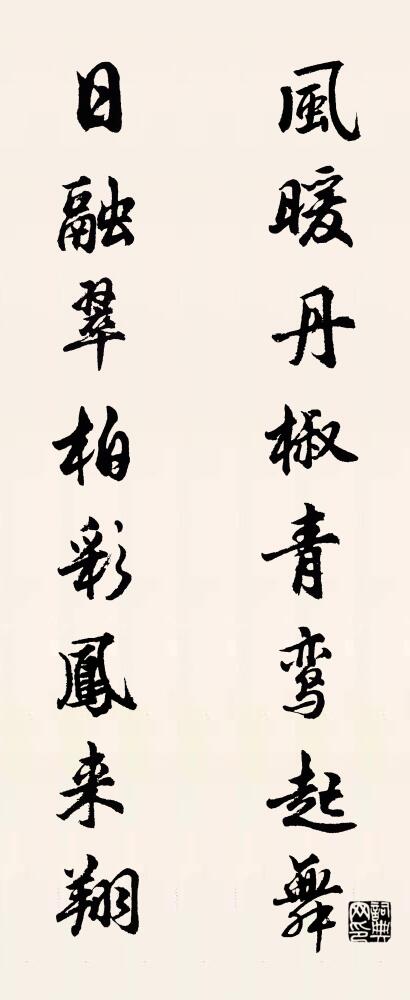 風暖丹椒青鸾起舞
日融翠柏彩鳳来翔
詞典网印